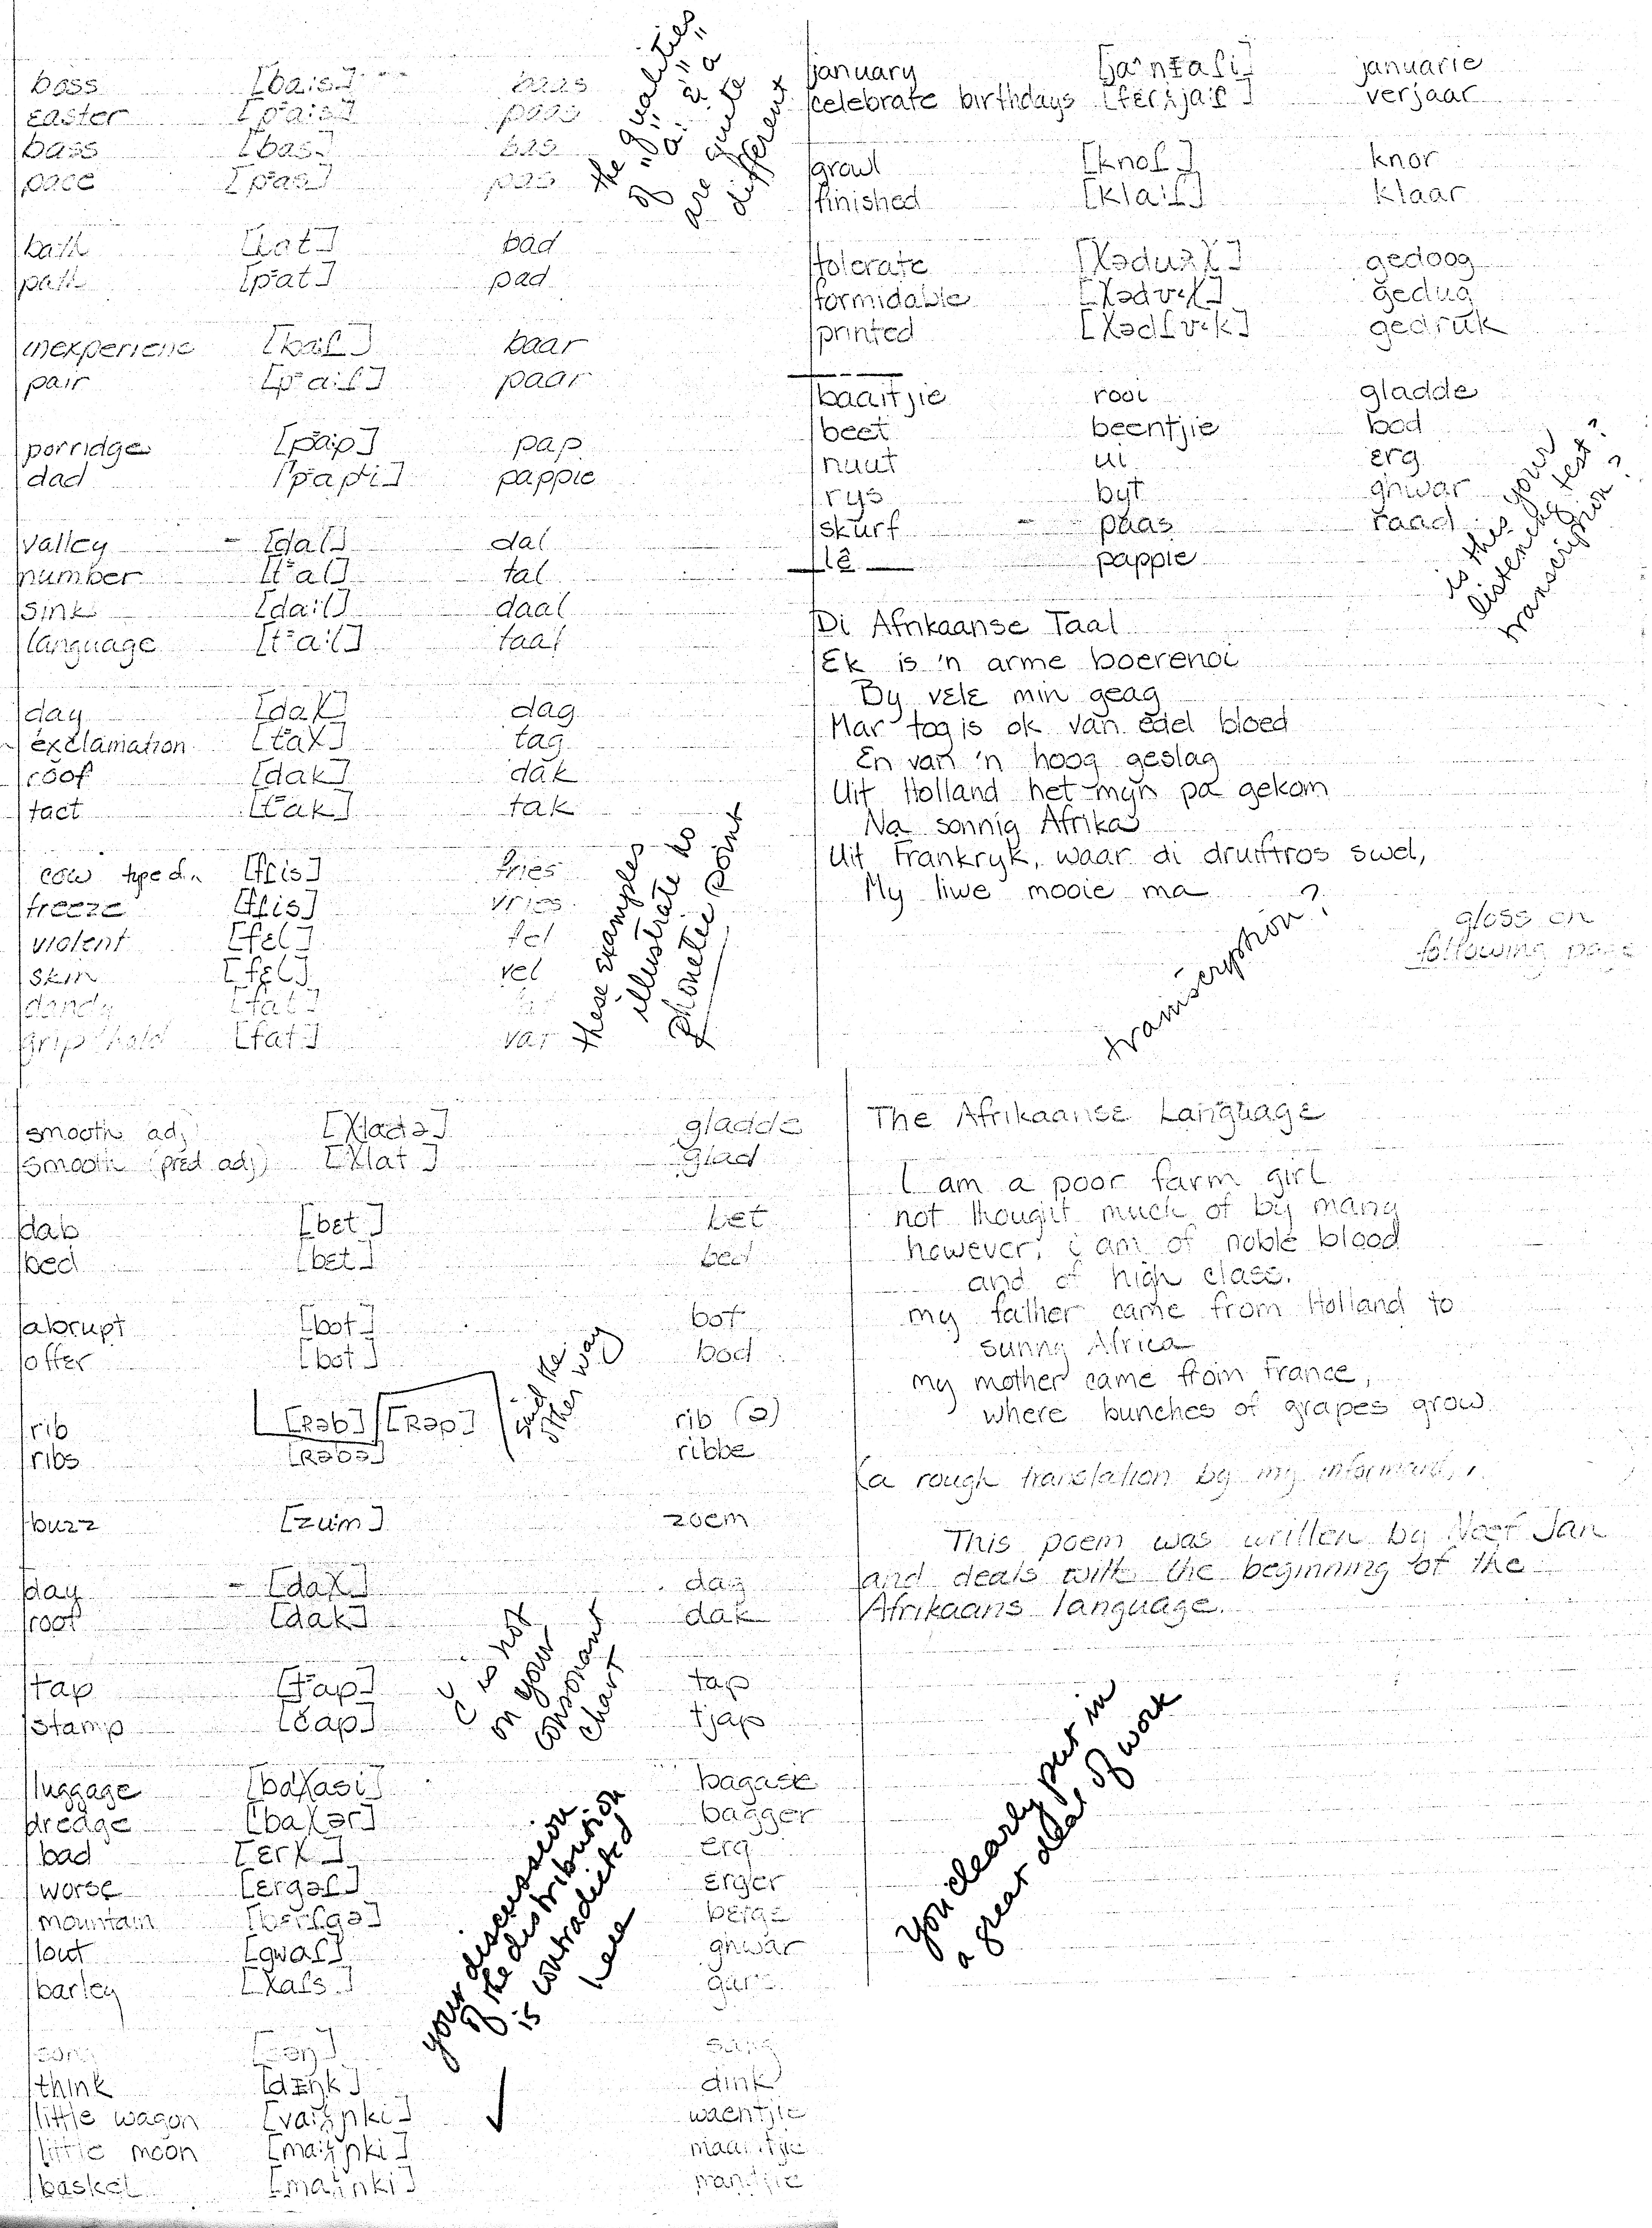 boss [ba:s] baas
easter [p⁼a:s] paas
bass [bas] bas
pace [p⁼as] pas
bath [bat] bad
path [p⁼at] pad
inexperienc [ba:ɾ] baar
pair [p⁼a:ɾ] paar
porridge [p⁼ap] pap
dad ['p⁼ap⁼i] pappie
valley - [dal] dal
number [t⁼al] tal
sink [da:l] daal
language [t⁼a:l] taal
day [daχ] dag
exclamation [t⁼aχ] tag
roof [dak] dak
tact [t⁼ak] tak
cow type d.n [fɾis] fries
freeze [fɾis] vries
violent [fɛl] fel
skin [fɛl] vel
dandy [fat]
grip/hold [fat] vat
the qualities
of "a:" & "a"
are quite
different
these examples
illustrate no
phonetic point
january januarie
celebrate birthdays [fɛrχja:ɾ] verjaar
growl [knoɾ] knor
finished [kla:ɾ] klaar
tolerate [χəduəχ] gedoog
formidable gedug
printed gedruk
baaitjie rooi gladde
beet beentjie bod
nuut ui erg
rys byt ghwar
skurf - paas raad
lê pappie
is this your
listening test?
transcription?
Di Afrikaanse Taal
Ek is 'n arme boerenoi
By vele min geag
Mar tog is ok van edel bloed
En van 'n hoog geslag
Uit Holland het myn pa gekom
Na sonnig Afrika
Uit Frankryk, waar di druiftros swel,
My liwe mooie ma
transcription?
gloss on
following page
smooth adj [χladə] gladde
smooth (pred adj) [χlat] glad
dab [bɛt] bet
bed [bɛt] bed
abrupt [bot] bot
offer [bot] bod
rib [Rəb] [Rəp] rib (ə)
ribs [Rəbə] ribbe
said the
other way
buzz [zum] zoem
day - [daχ] dag
roof [dak] dak
tap [t⁼ap] tap
stamp [čap] tjap
č is not
on your
consonant
chart
luggage [ba'χasi] bagasie
dredge ['baχər] bagger
bad [ɛrχ] erg
worse [ɛrgəɾ] erger
mountain berge
lout [gwaɾ] ghwar
barley [χaɾs] gars
your discussion
of the distribution
is contradicted
here
song [səŋ] sang
think [dɪŋk] dink
little wagon waentjie
little moon maantjie
basket mandjie
The Afrikaanse Language
I am a poor farm girl
not thought much of by many
however, i am of noble blood
and of high class.
my father came from Holland to
sunny Africa
my mother came from France,
where bunches of grapes grow.
(a rough translation by my informant)
This poem was written by Neef Jan
and deals with the beginning of the
Afrikaans language.
You clearly put in
a great deal of work